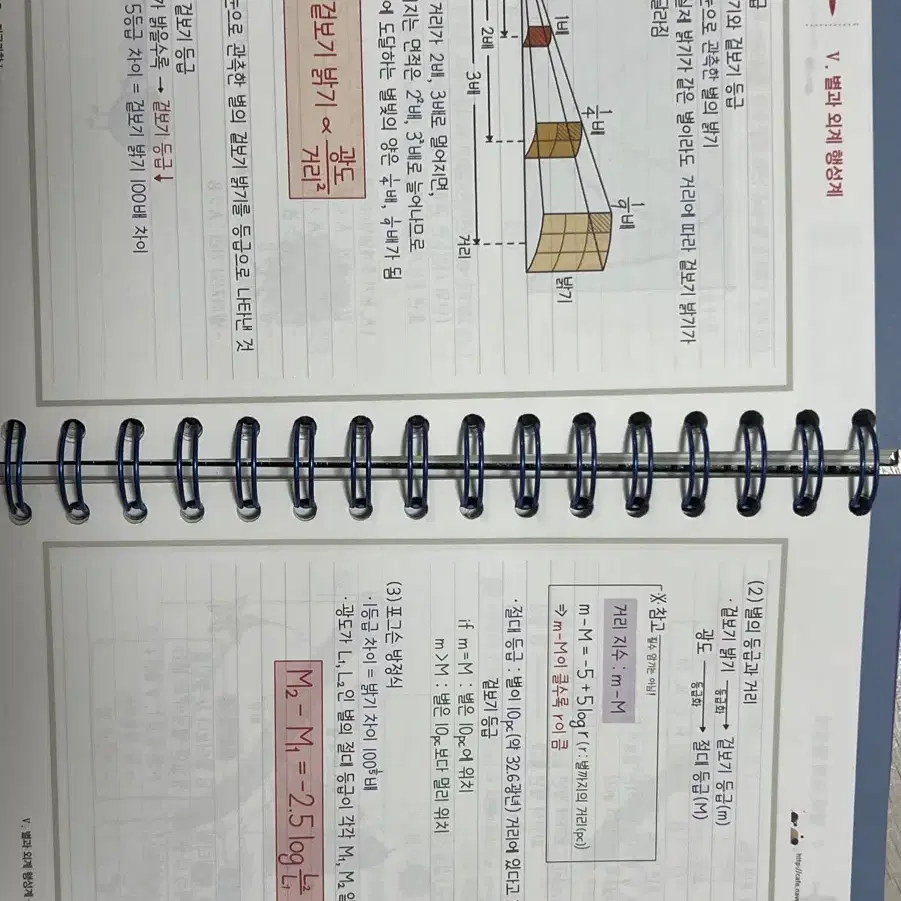 V. 별과 외계 행성계
기와 겉보기 등급
구으로 관측한 별의 밝기
실제 밝기가 같은 별이라도 거리에 따라 겉보기 밝기가
달라짐
1배
1/4배
1/9배
밝기
2배
3배
거리
거리가 2배, 3배로 멀어지면,
지는 면적은 2²배, 3²배로 늘어나므로
에 도달하는 별빛의 양은 1/4배, 1/9배가 됨
겉보기 밝기 ∝ 광도/거리²
구으로 관측한 별의 겉보기 밝기를 등급으로 나타낸 것
겉보기 등급
가 밝을수록 → 겉보기 등급↓
5등급 차이 = 겉보기 밝기 100배 차이
(2) 별의 등급과 거리
· 겉보기 밝기 등급화→ 겉보기 등급(m)
광도 등급화→ 절대 등급(M)
※ 참고 필수 암기는 아님!
거리 지수 : m-M
m-M = -5+5logr (r : 별까지의 거리(pc))
⇒ m-M이 클수록 r이 큼
· 절대 등급 : 별이 10pc(약 32.6광년) 거리에 있다고
겉보기 등급
if m=M : 별은 10pc에 위치
m>M : 별은 10pc보다 멀리 위치
(3) 포그슨 방정식
· 1등급 차이 = 밝기 차이 100^1/5배
· 광도가 L₁, L₂인 별의 절대 등급이 각각 M₁, M₂일
M₂ - M₁ = -2.5 log L₂/L₁
http://cafe.nav
V. 별과 외계 행성계